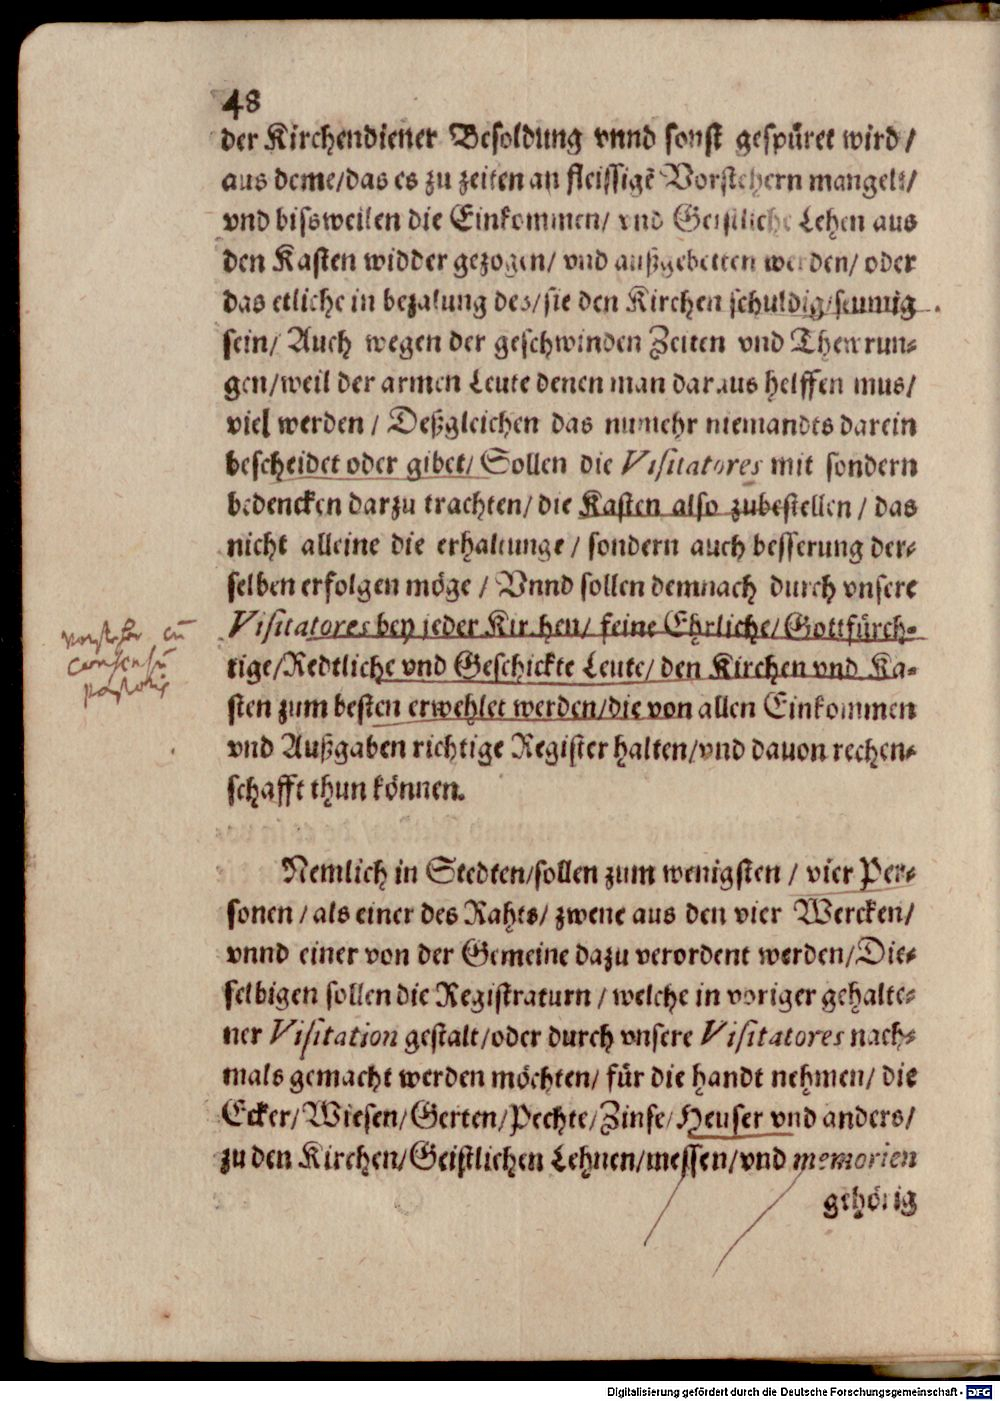 48
der Kirchendiener Besoldung vnnd sonst gespüret wird/
aus deme/das es zu zeiten an fleissigē Vorstehern mangelt/
vnd bissweilen die Einkommen/ vnd Geistliche Lehen aus
den Kasten widder gezogen/ vnd außgebetten werden/ oder
das etliche in bezalung des/sie den Kirchen schuldig/seumig
sein/ Auch wegen der geschwinden Zeiten vnd Thewrun⸗
gen/weil der armen Leute denen man daraus helffen mus/
viel werden / Deßgleichen das numehr niemandts darein
bescheidet oder gibet/ Sollen die Visitatores mit sondern
bedencken darzu trachten/ die Kasten also zubestellen / das
nicht alleine die erhaltunge / sondern auch besserung der⸗
selben erfolgen möge / Vnnd sollen demnach durch vnsere
Visitatores bey jeder Kirchen/ feine Ehrliche/ Gottfürch⸗
tige/Redtliche vnd Geschickte Leute/ den Kirchen vnd Ka⸗
sten zum besten erwehlet werden/die von allen Einkommen
vnd Außgaben richtige Register halten/vnd dauon rechen⸗
schafft thun können.
Nemlich in Stedten/sollen zum wenigsten / vier Per⸗
sonen / als einer des Rahts/ zwene aus den vier Wercken/
vnnd einer von der Gemeine dazu verordent werden/Die⸗
selbigen sollen die Registraturn / welche in voriger gehalte⸗
ner Visitation gestalt/oder durch vnsere Visitatores nach⸗
mals gemacht werden möchten/ für die handt nehmen/ die
Ecker/Wiesen/Gerten/Pechte/Zinse/Heuser vnd anders/
zu den Kirchen/Geistlichen Lehnen/messen/vnd memorien
gehörig
Digitalisierung gefördert durch die Deutsche Forschungsgemeinschaft - DFG